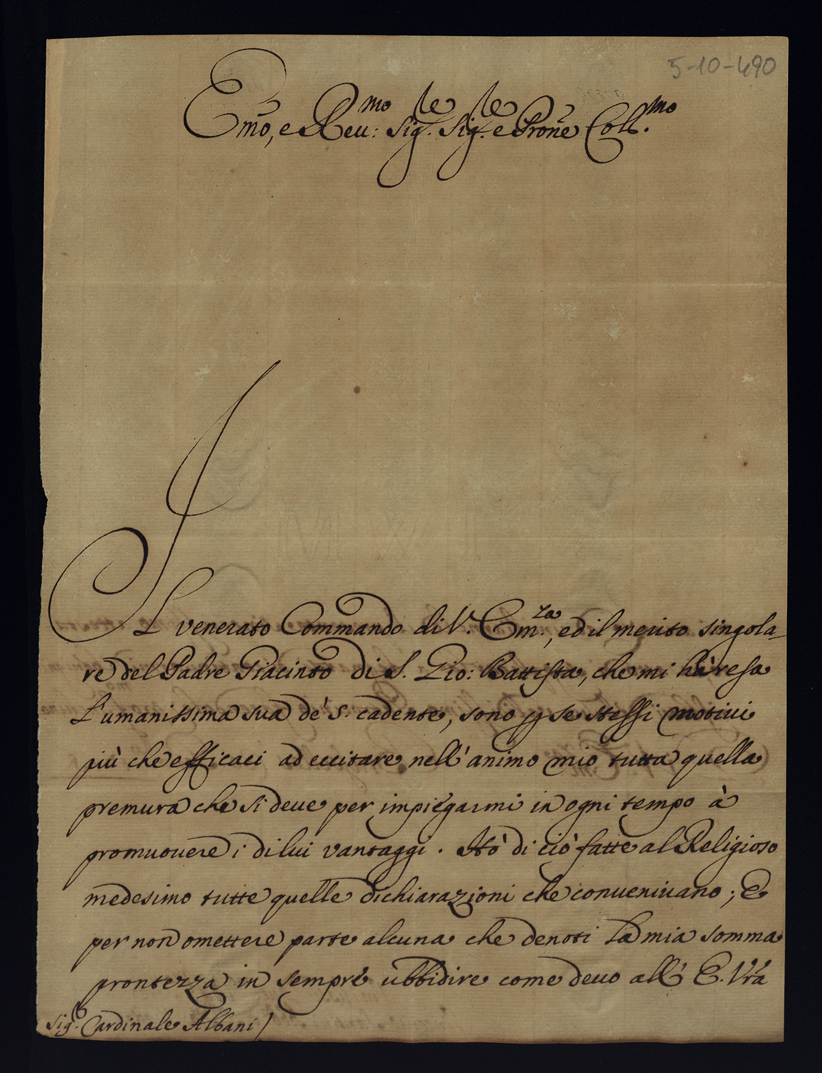 5-10-490
Emo, e Reu: mo Sig.re Sig.re e Prone Coll.mo
IL venerato Commando di V. Em.za, ed il merito singola-
re del Padre Giacinto di S. Gio: Battista, che mi hà resa
l'umanissima sua de' 5. cadente, sono p se stessi motiui
più che efficaci ad eccitare nell'animo mio tutta quella
premura che si deue per impiegarmi in ogni tempo à
promuouere i di lui vantaggi. Hò di ciò fatte al Religioso
medesimo tutte quelle dichiarazioni che conueniuano; E
per non omettere parte alcuna che denoti la mia somma
prontezza in sempre ubbidire come deuo all' E. Vrã
Sig.r Cardinale Albani /